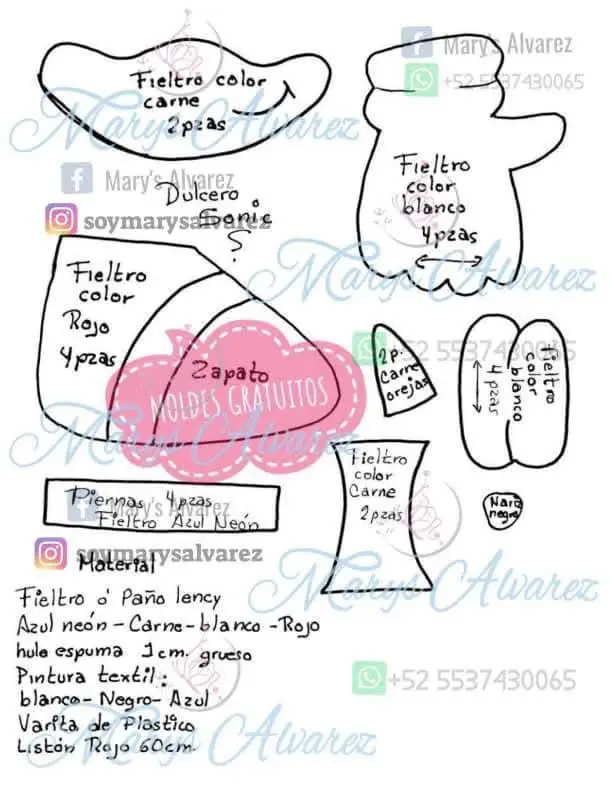 Mary's Alvarez
+52 5537430065
Fieltro color
carne
2pzas
Marys Alvarez
Fieltro
color
blanco
4pzas
Mary's Alvarez
soymarysalvarez
Dulcero
Sonic
Marys Alvarez
Fieltro
color
Rojo
4pzas
Zapato
MOLDES GRATUITOS
2P.
Carne
orejas
+52 5537430065
Fieltro
color
blanco
4 pzas
Marys Alvarez
Fieltro
color
Carne
2 pzas
Nariz
negra
Piernas 4 pzas
Fieltro Azul Neón
Mary's Alvarez
soymarysalvarez
Marys Alvarez
Material
Fieltro ó Paño lency
Azul neón-Carne-blanco-Rojo
hule espuma 1cm. grueso
Pintura textil:
blanco-Negro-Azul
Varita de Plastico
Listón Rojo 60cm
+52 5537430065
Marys Alvarez